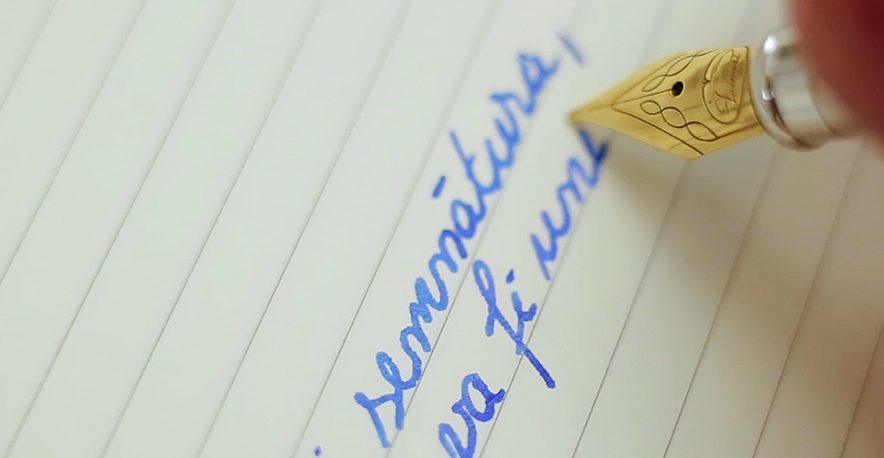 semnătura,
va fi unu